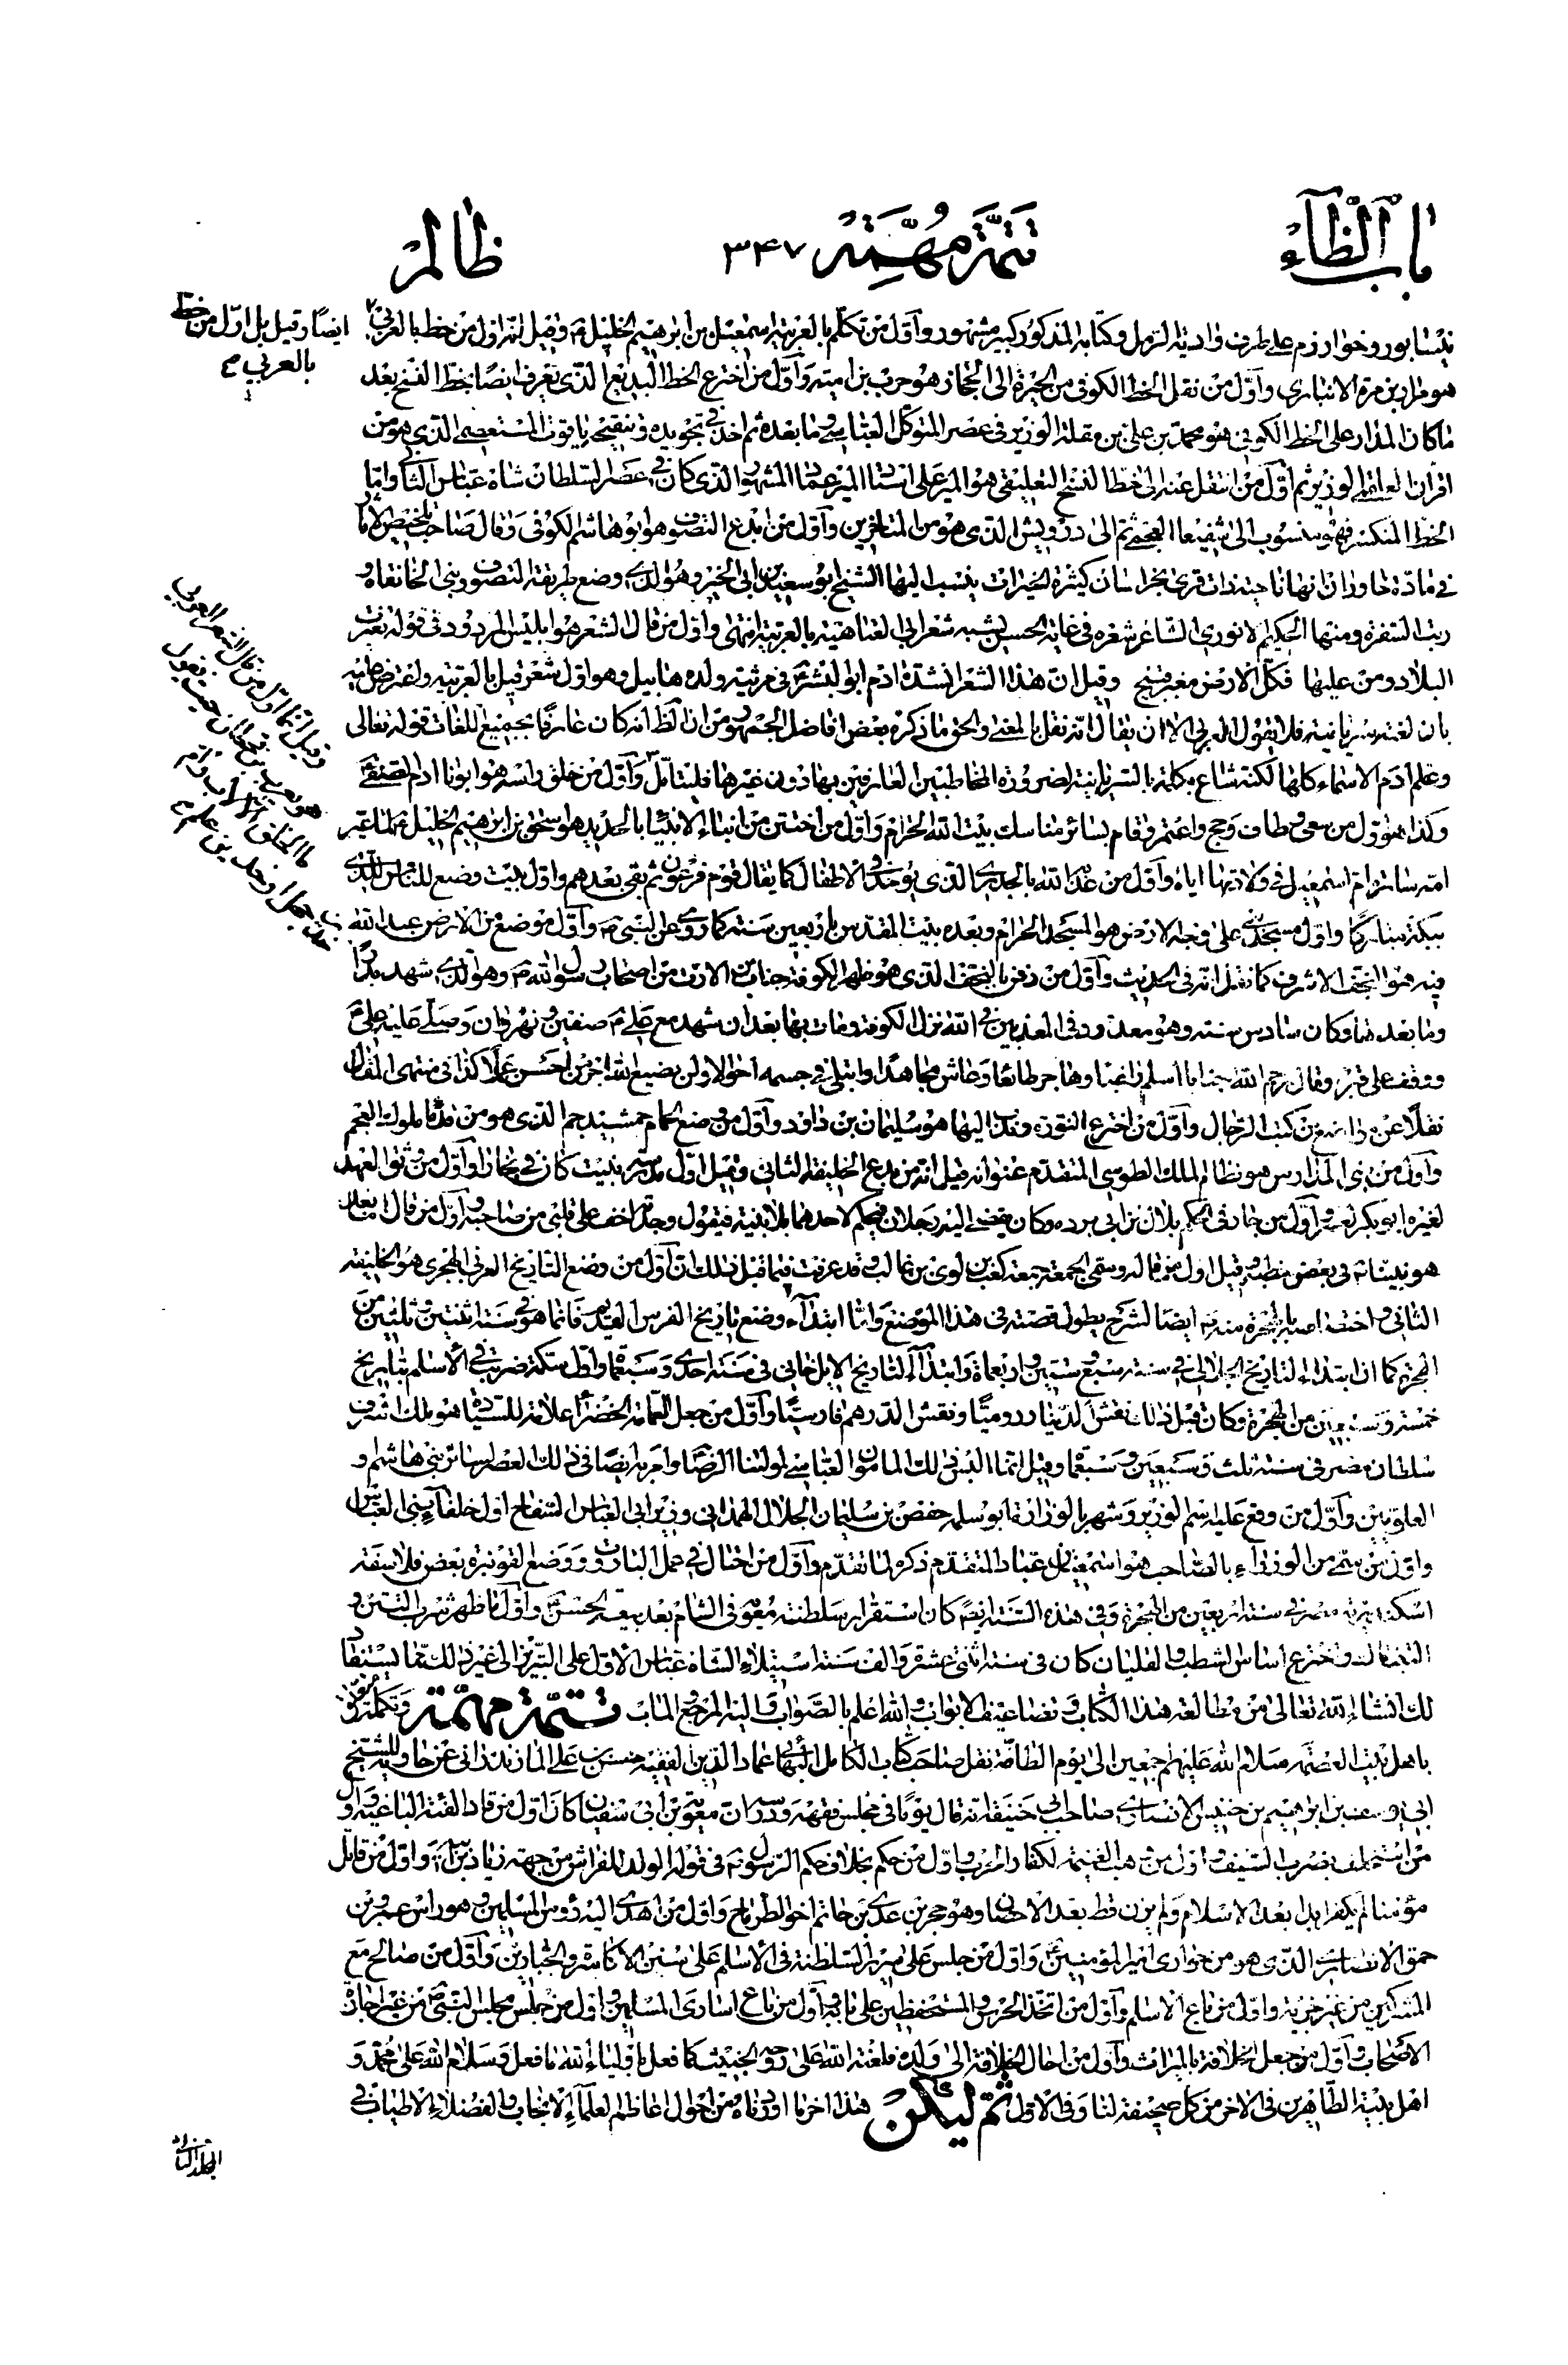 باب الظاء
تتمّة مهمّة ٣٤٧
ظالم
نيشابور وخوارزم على طرف وادية الرمل وكتابه المذكور كبير مشهور وأوّل من تكلّم بالعربية اسمعيل بن ابرهيم الخليل ع وقيل انّه اوّل من خط بالعربي
ايضا وقيل بل اوّل من خط
بالعربي ع
هو مرار بن مرة الانباري وأوّل من نقل الخط الكوفي من الحيرة الى الحجاز هو حرب بن امية وأوّل من اخترع الخط البديع الذي يعرف ايضا بخط النسخ بعد
ما كان المدار على الخط الكوفي هو محمد بن علي بن مقلة الوزير في عصر المتوكل العباسي وما بعده ثم اخذ في تجويده وتنقيحه ياقوت المستعصمي الذي هو من
اقران العلقمي الوزير ثم أوّل من انتقل عنه الى خط النسخ التعليقي هو المير علي استاد المير عماد المشهور الذي كان في عصر السلطان شاه عباس الثاني وامّا
الخط المنكسر فهو منسوب الى شفيعا العجمي ثم الى درويش الذي هو من المتاخرين وأوّل من ابدع التصوف هو ابو هاشم الكوفي وقال صاحب تلخيص الآثار
في مادّة خاوران انها ناحية ذات قرى بخراسان كثيرة الخيرات ينسب اليها الشيخ ابو سعيد بن ابي الخير وهو الذي وضع طريقة التصوف وبنى الخانقاه و
رتب السفرة ومنها الحكيم الانوري الشاعر شعره في غاية الحسن يشبه شعر ابي العتاهية بالعربية انتهى واوّل من قال الشعر هو ابليس المردود في قوله تغيرت
البلاد ومن عليها فكلّ الارض مغبر قبيح وقيل ان هذا الشعر انشده ادم ابو البشر في مرثية ولده هابيل وهو اول شعر قيل بالعربية واعترض عليه
بان لغته سريانية فلا يقول العربي الا ان يقال انّه نقل بالمعنى والحق ما ذكره بعض افاضل الجمهور من ان الظ انه كان عارفا بجميع اللغات قوله تعالى
وعلم ادم الاسماء كلها لكنه شاع تكلمه بالسريانية لضرورة المخاطبين العارفين بها دون غيرها فليتامّل وأوّل من خلق راسه هو ابونا ادم الصفي
وكذا هو اوّل من سعى وطاف وحج واعتمر وقام بسائر مناسك بيت الله الحرام وأوّل من اختتن من ابناء الانبياء بالحديد هو اسحق بن ابرهيم الخليل ع لما عير
امه سارة ام اسمعيل في ولادتها اياه وأوّل من عذّبه الله بالجدري الذي يوخذ في الاطفال كما يقال قوم فرعون ثم بقي بعدهم واول بيت وضع للناس للذي
ببكة مباركا واوّل مسجد بني على وجه الارض هو المسجد الحرام وبعده بيت المقدس باربعين سنة كما روي عن النبي ص وأوّل موضع من الارض عبد الله
فيه هو النجف الاشرف كما نقل انه في الحديث وأوّل من دفن بالنجف الذي هو ظهر الكوفة جناب بن الارت من اصحاب رسول الله ص وهو الذي شهد بدرا
وما بعدها وكان سادس ستة وهو معدود في المعذبين في الله نزل الكوفة ومات بها بعد ان شهد مع علي ع صفين ونهروان وصلّى عليه علي ع
ووقف على قبره وقال رحم الله جنابا اسلم راغبا وهاجر طائعا وعاش مجاهدا وابتلي في جسمه احوالا ولن يضيع الله اجر من احسن عملا كذا في منتهى المقال
نقلا عن من كتب الرجال وأوّل من اخترع النورة ودخل اليها هو سليمان بن داود وأوّل من وضع الحمام جمشيد جم الذي هو من قدماء ملوك العجم
وأوّل من بنى المدارس هو نظام الملك الطوسي المتقدم عنوانه قيل انّه من بدع الخليفة الثاني وقيل اوّل مدرسة بنيت كان في بخارا وأوّل من وثق العهد
لغيره ابو بكر لعمر وأوّل من جار في الحكم بلال بن ابي برده وكان يفضي اليه رجلان فيحكم لاحدهما بلا بينة فيقول وجدته اخف على قلبي من صاحبه وأوّل من قال امّا بعد
هو نبينا ص في بعض خطبه وقيل اول من قاله وسمّى الجمعة جمعة كعب بن لوي بن غالب وقد عرفت فيما قبل ذلك ان أوّل من وضع التاريخ العربي الهجري هو الخليفة
الثاني واختصاصه بالهجرة منه ص ايضا لشرح يطول قصته في هذا الموضع وامّا ابتداء وضع تاريخ الفرس القديم فانما هو في سنة اثنتين وثلثين من
الهجرة كما ان ابتداء التاريخ الجلالي في سنة سبع وستين واربعماة وابتداء التاريخ الايلخاني في سنة احدى وسبعماة واوّل سكة ضربت في الاسلام بتاريخ
خمسة وسبعين من الهجرة وكان قبل ذلك نقش الدينار روميا ونقش الدرهم فارسيا وأوّل من جعل العمامة الخضرا علامة للسيادة هو ملك اشرف
سلطان مصر في سنة ثلث وسبعين وسبعماة وقيل انما البس ذلك المامون العباسي لمولينا الرضا وامر به ايضا في ذلك العصر سائر بني هاشم و
العلويين وأوّل من وقع عليه اسم الوزير وشهر بالوزارة ابو سلمة حفص بن سليمان الخلال الهمداني وزير ابي العباس السفاح اول خلفاء بني العباس
واوّل من سمّي من الوزراء بالصاحب هو اسمعيل بن عباد المتقدم ذكره لما تقدم وأوّل من احتال في عمل الباروت ووضع لقوته بعض فلاسفة
اسكندرية مصر في سنة اربعين من الهجرة وفي هذه السنة ايضا كان استقرار سلطنة معوية في الشام بعد بيعة الحسن ع وأوّل ما ظهر شرب التتن و
التنباكو واخترع اساس الشطب والغليان كان في سنة اثنتي عشر والف سنة استيلاء الشاه عباس الاول على التبريز الى غير ذلك ممّا يستفاد
لك انشاء الله تعالى من مطالعة هذا الكتاب وتضاعيف الابواب والله اعلم بالصواب واليه المرجع والماب تتمّة مهمّة وتكملة
باهل بيت العصمة سلام الله عليهم اجمعين الى يوم الطامة نقل صاحب كتاب الكامل البهائي عماد الدين الفقيه حسن بن علي المازندراني عن حاوية للشيخ
ابي يوسف بن ابرهيم بن حنيس الانصاري صاحب ابي حنيفة انه قال يوما في مجلس فقهه ودرسه ان معوية بن ابي سفيان كان اول من قاد الفئة الباغية واول
من استخلف بضرب السيف واول من وهب الغنيمة لكفار الحرب واوّل من حكم بخلاف حكم الرسول ص في قوله الولد للفراش من جهة زياد بن ابيه واوّل من قاتل
مؤمنا لم يكفر ابدا بعد الاسلام ولم يزن قط بعد الاحصان وهو حجر بن عدي بن حاتم اخو الطرماح واوّل من اهدي اليه رؤس المسلمين وهو راس عمرو بن
حمق الانصاري الذي هو من حواري امير المؤمنين ع واوّل من جلس على سرير السلطنة في الاسلام على سنن الاكاسرة والجبارين وأوّل من صالح مع
المشركين من غير جزية واوّل من باع الاسلام وأوّل من اتخذ الحرس والمستحفظين على بابه وأوّل من باع اسارى المسلمين واول من جلس مجلس النبي ص من غير اجازة
الاصحاب وأوّل من جعل الخلافة بالميراث وأوّل من احال الخلافة الى ولده فلعنة الله على روحه الخبيث كما فعل باولياء الله ما فعل وسلام الله على محمد و
اهل بيته الطاهرين في الاخر من كل صحيفة لنا وفي الاول ثمّ ليكن هذا اخر ما اوردناه من احوال اعاظم العلماء الانجاب والفضلاء الاطياب في
وقيل انما اوّل من قال الشعر العربي
هو يعرب بن قحطان حيث يقول
ما الخلق الا لاب وام
المجلد الثاني